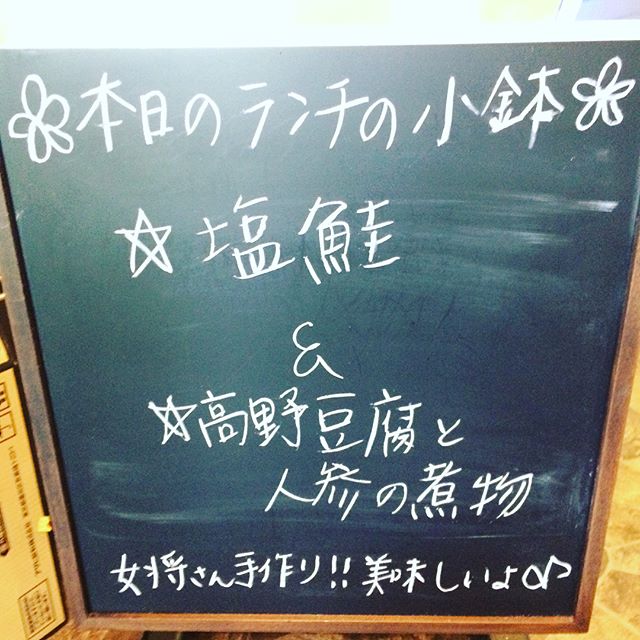 本日のランチの小鉢
☆塩鮭
&
☆高野豆腐と
人参の煮物
女将さん手作り!!美味しいよ♪